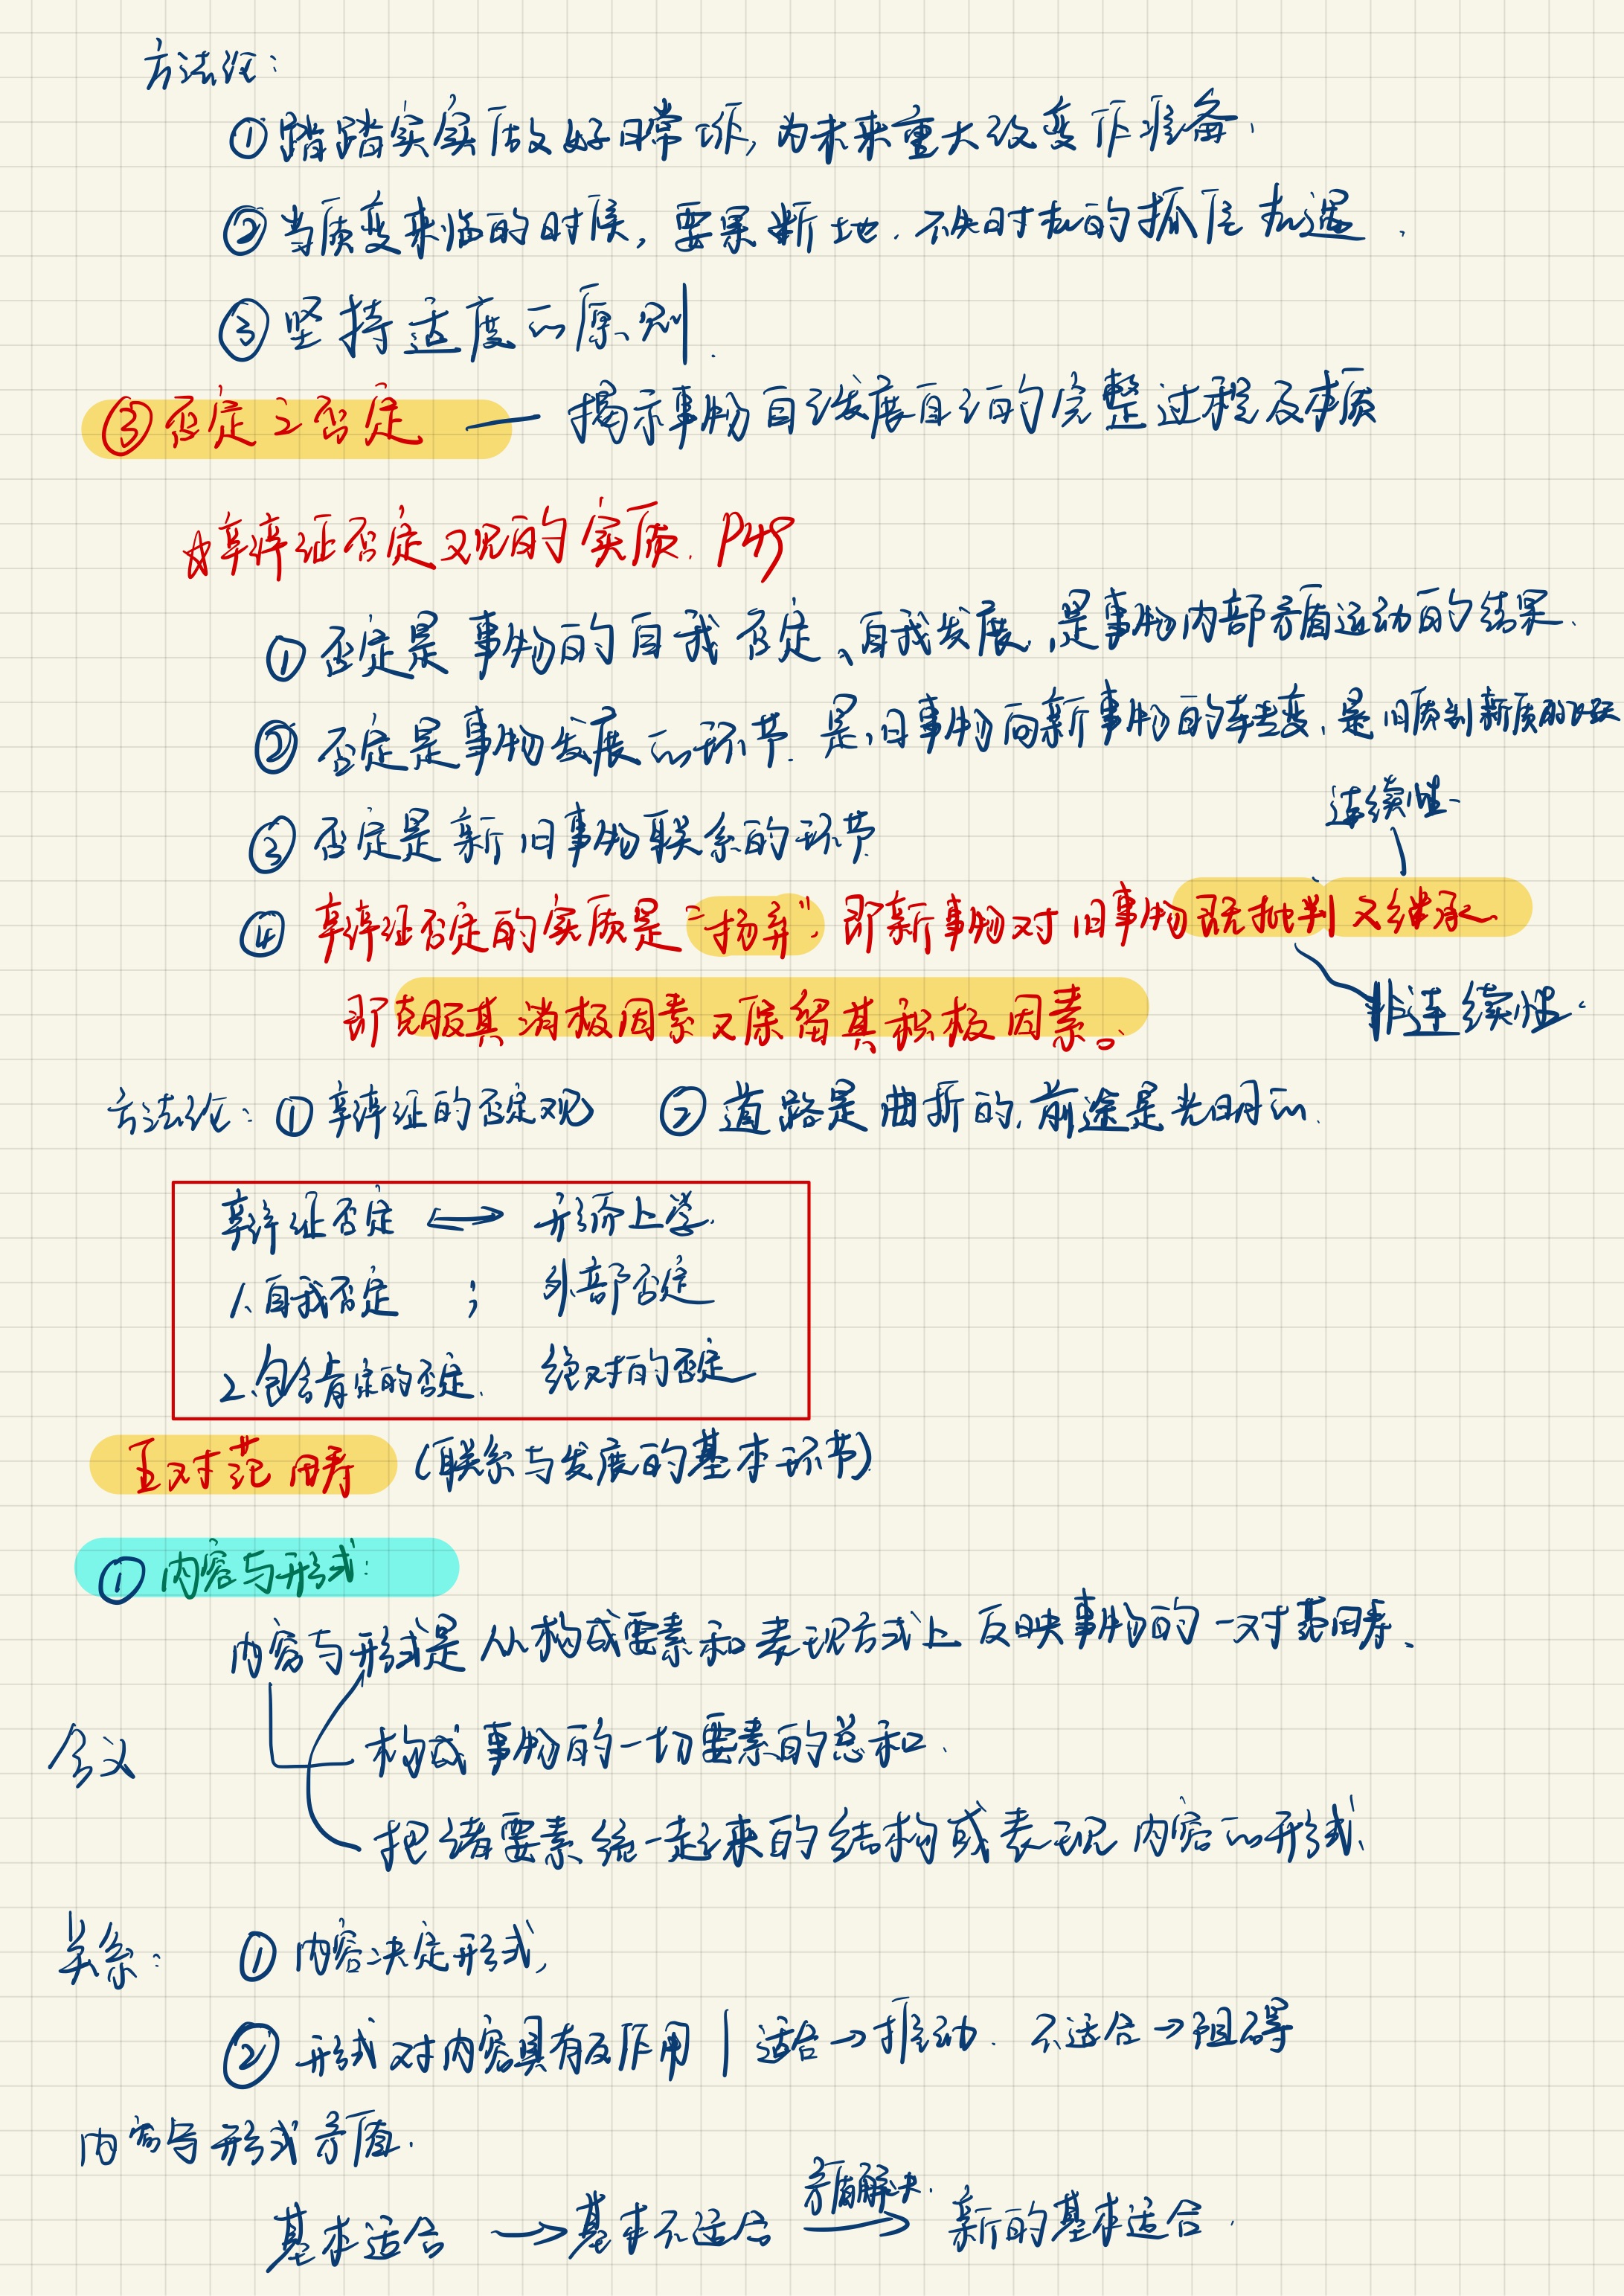 方法论：
①踏踏实实做好日常工作，为未来重大改变作准备.
②当质变来临的时候，要果断地.不失时机的抓住机遇.
③坚持适度的原则.
③否定之否定 —— 揭示事物自己发展自己的完整过程及本质
☆辩证否定观的实质. P45
①否定是事物的自我否定、自我发展，是事物内部矛盾运动的结果.
②否定是事物发展的环节.是旧事物向新事物的转变，是旧质到新质的飞跃
连续性
③否定是新旧事物联系的环节
④辩证否定的实质是“扬弃”，即新事物对旧事物既批判又继承
即克服其消极因素又保留其积极因素。
非连续性.
方法论：①辩证的否定观 ②道路是曲折的，前途是光明的.
辩证否定 ⟷ 形而上学.
1.自我否定 ； 外部否定
2.包含肯定的否定. 绝对的否定
五对范畴（联系与发展的基本环节）
①内容与形式：
内容与形式是从构成要素和表现方式上反映事物的一对范畴.
含义
构成事物的一切要素的总和.
把诸要素统一起来的结构或表现内容的形式.
关系：①内容决定形式，
②形式对内容具有反作用 | 适合→推动. 不适合→阻碍
内容与形式矛盾.
矛盾解决.
基本适合 → 基本不适合 → 新的基本适合.